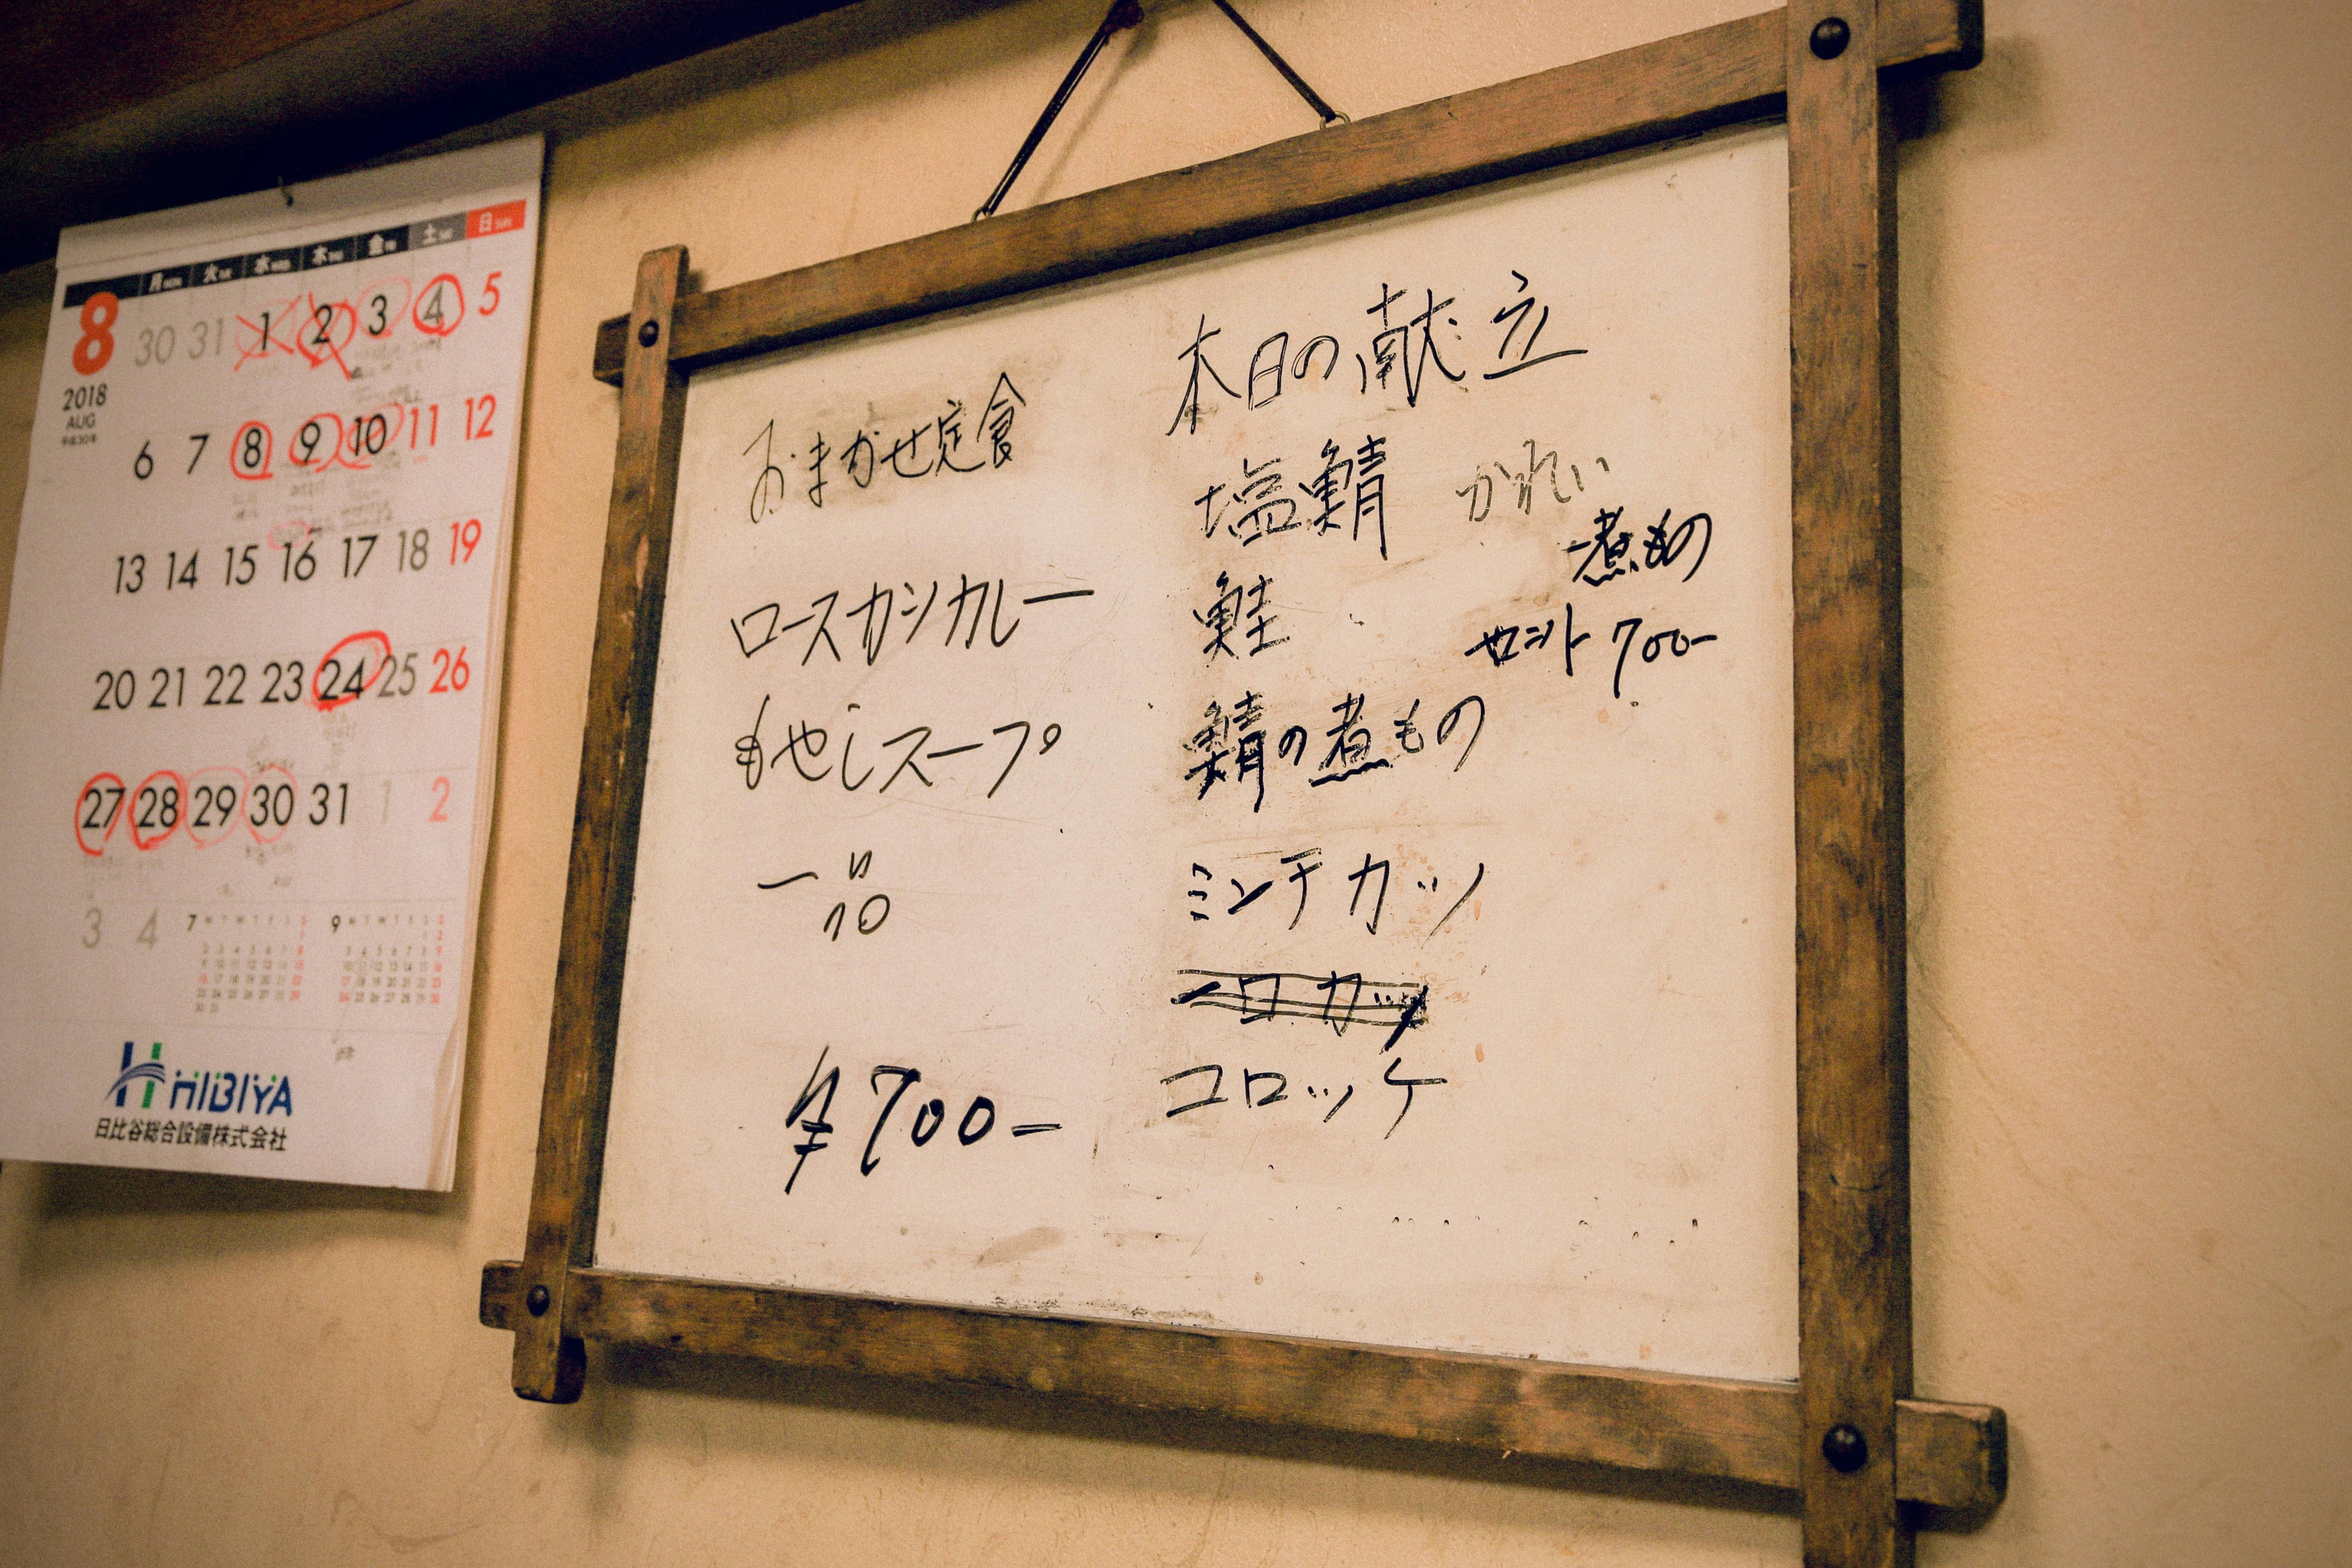 月MON 火TUE 水WED 木THU 金FRI 土SAT 日SUN
8
2018
AUG
平成30年
30 31 1 2 3 4 5
6 7 8 9 10 11 12
13 14 15 16 17 18 19
20 21 22 23 24 25 26
27 28 29 30 31 1 2
3 4 7 9
HIBIYA
日比谷総合設備株式会社
おまかせ定食
ロースカツカレー
もやしスープ
一品
¥700-
本日の献立
塩鯖 かれい
煮もの
鮭
セット 700-
鯖の煮もの
ミンチカツ
一口カツ
コロッケ